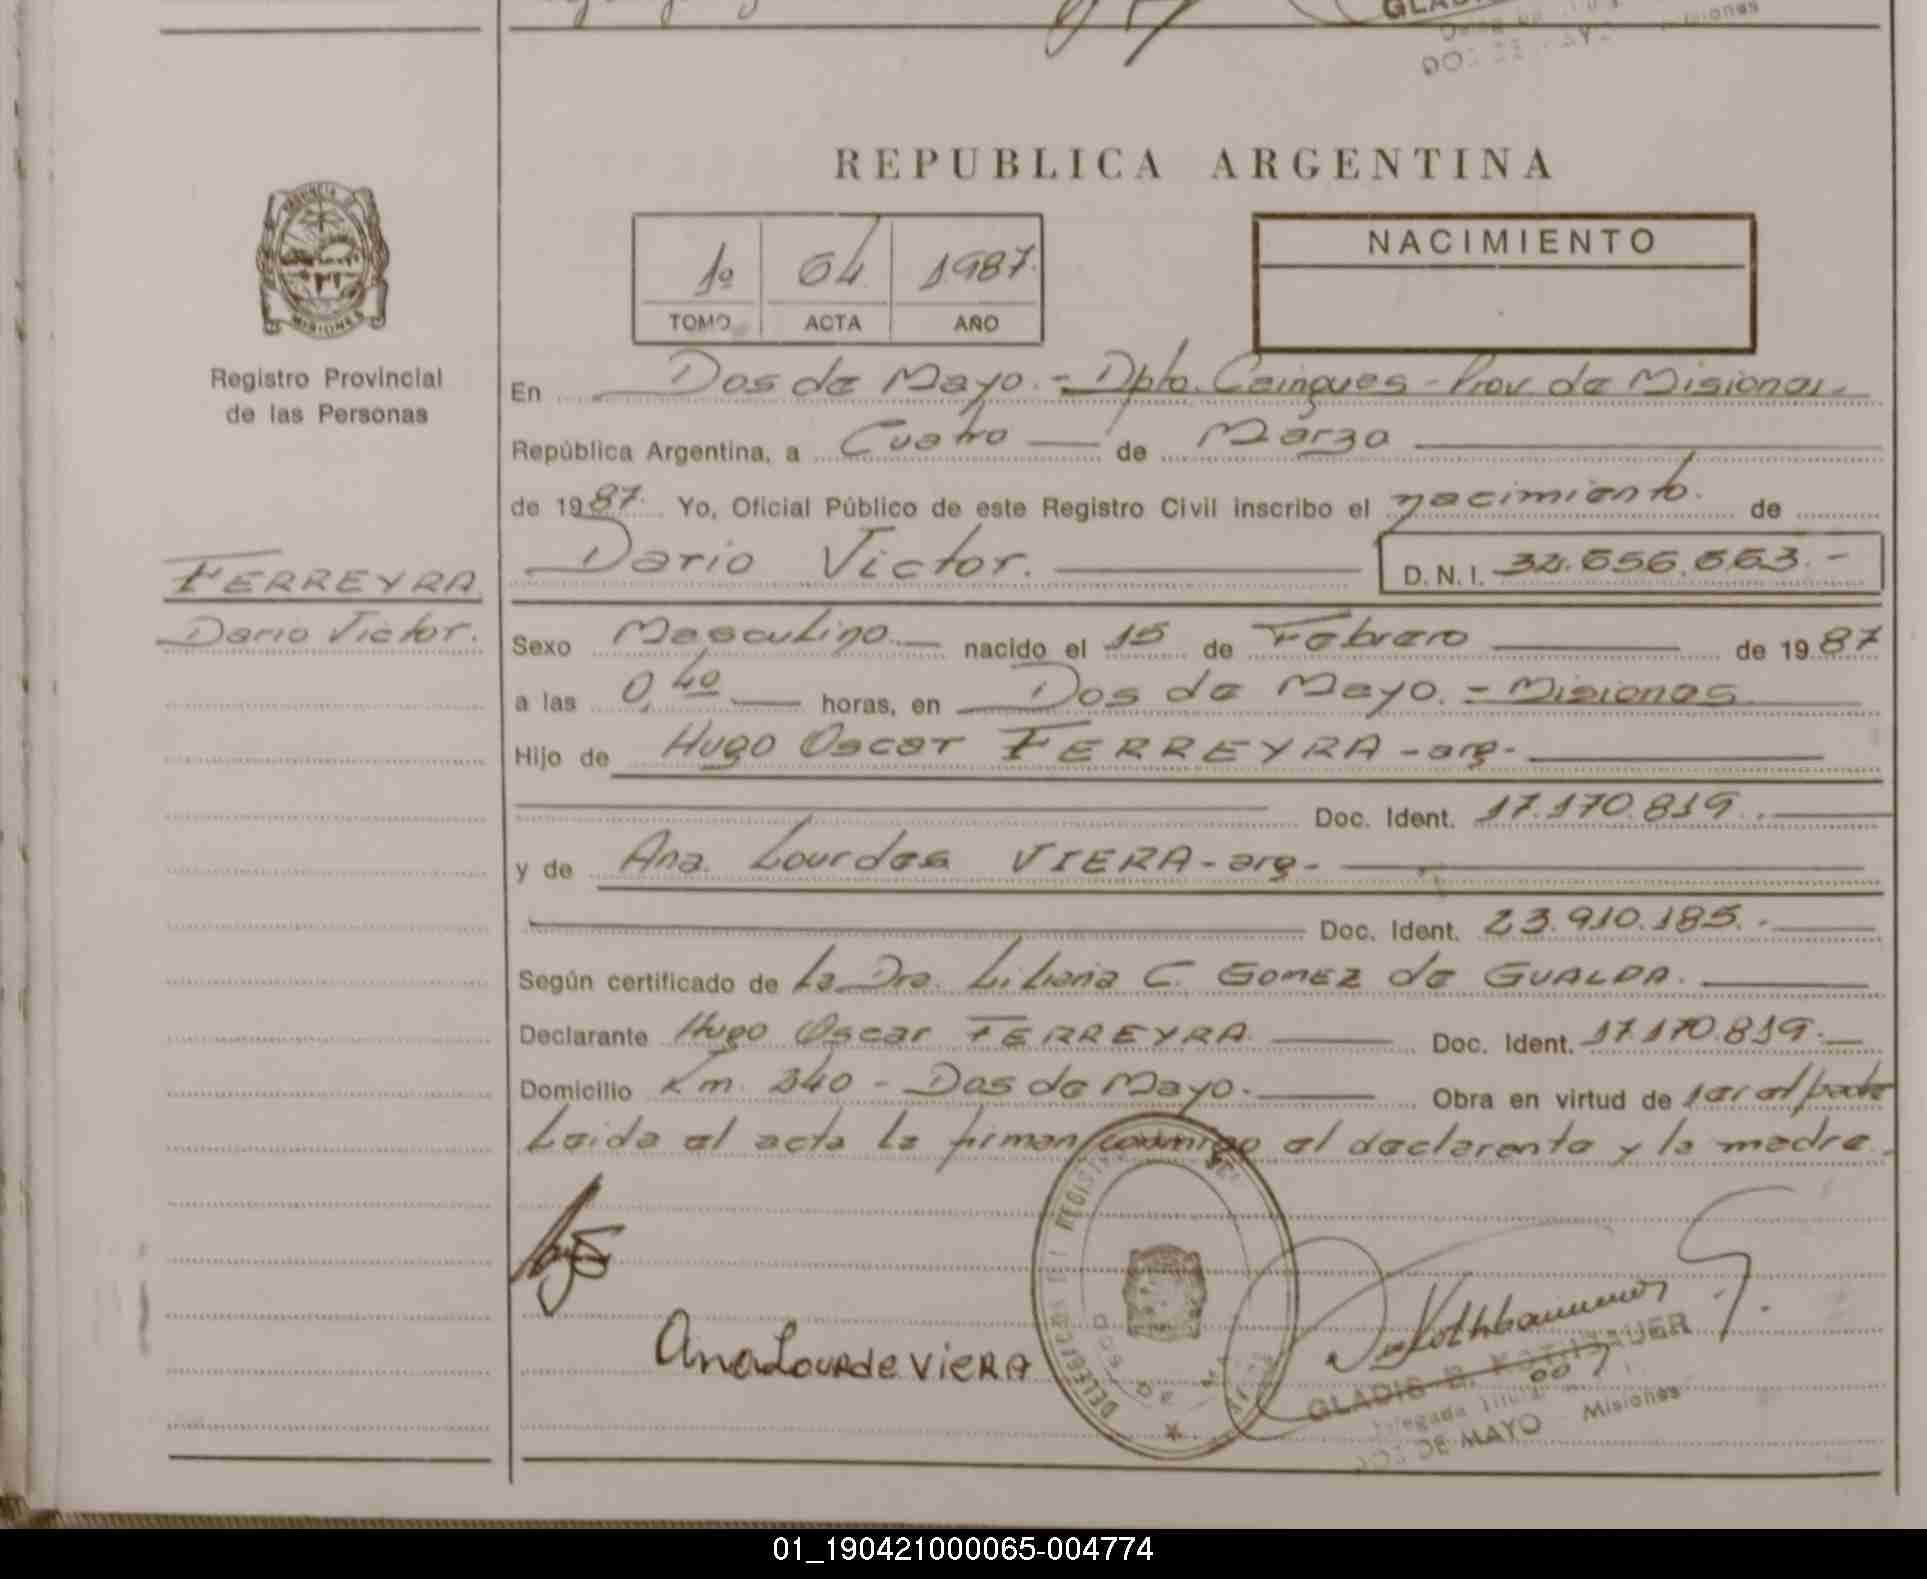 REPUBLICA ARGENTINA
1º 64 1987.
TOMO ACTA AÑO
NACIMIENTO
PROVINCIA
MISIONES
Registro Provincial
de las Personas
En Dos de Mayo.- Dpto. Cainguas - Prov. de Misiones.
República Argentina, a Cuatro de Marzo
de 1987. Yo, Oficial Público de este Registro Civil inscribo el nacimiento. de
Dario Victor. D.N.I. 32.656.663.-
FERREYRA
Dario Victor.
Sexo Masculino nacido el 15 de Febrero de 1987
a las 0,40 horas, en Dos de Mayo. - Misiones
Hijo de Hugo Oscar FERREYRA - arg-
Doc. Ident. 17.170.819.
y de Ana Lourdes VIERA - arg-
Doc. Ident. 23.910.185.-
Según certificado de La Dra. Liliana C. GOMEZ de GUALDA.
Declarante Hugo Oscar FERREYRA Doc. Ident. 17.170.819.
Domicilio Km. 240 - Dos de Mayo. Obra en virtud de ser el padre
Leida el acta la firman conmigo el declarante y la madre.
Ana Lourde VIERA
GLADIS
Delegada Titular
DOS DE MAYO Misiones
01_190421000065-004774